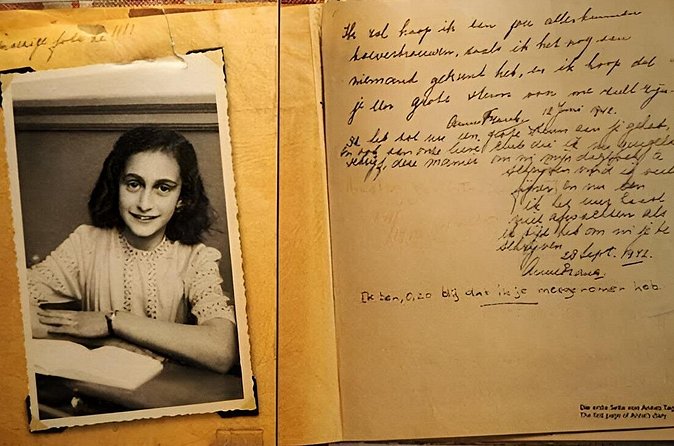 foto hè !!!!
Ik zal hoop ik aan jou alles kunnen
toevertrouwen, zoals ik het nog aan
niemand gekund heb, en ik hoop dat
je een grote steun voor me zult zijn.
Anne Frank. 12 Juni 1942.
Ik heb tot nu een grote steun aan je gehad,
en ook aan onze lieve club die ik nu geregeld
schrijf, deze manier om in mijn dagboek
te schrijven vind ik veel
fijner en nu kan
ik het uur haast
niet afwachten als
ik tijd heb om in je te
schrijven.
28 Sept. 1942.
Anne Frank.
Ik ben, o, zo blij dat ik je meegenomen heb.
Die erste Seite von Annes Tag
The first page of Anne's diary